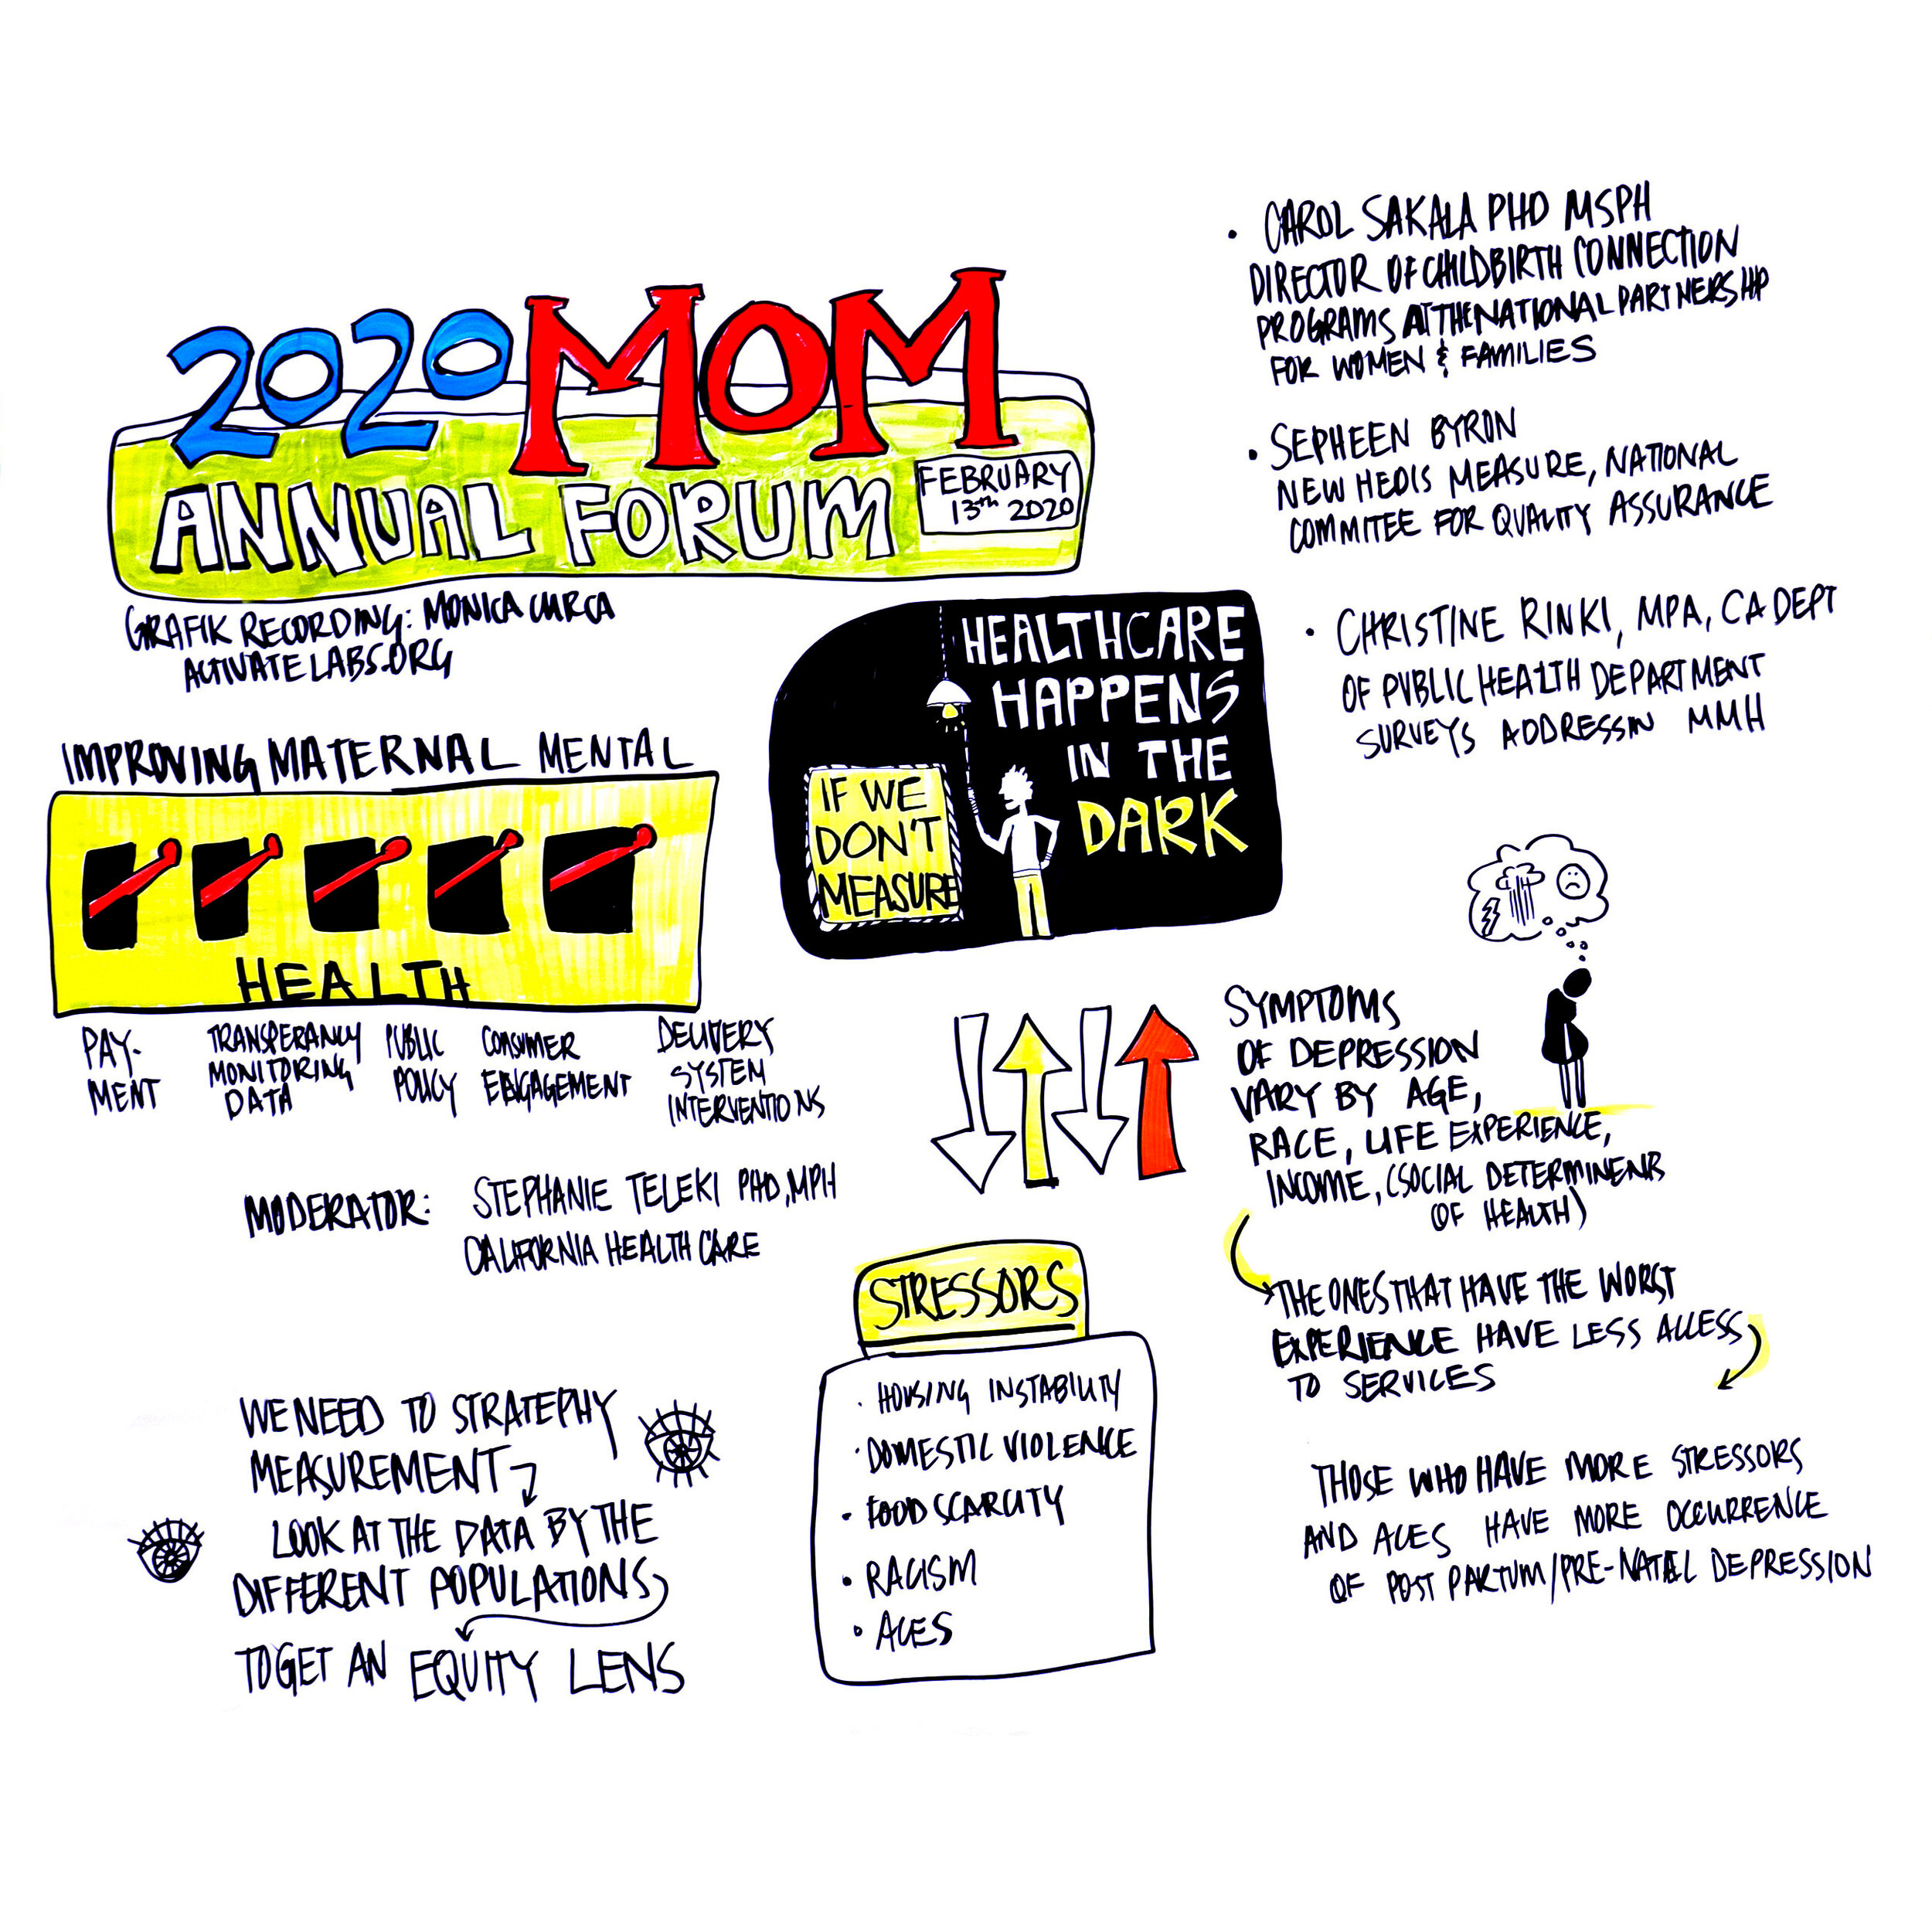 2020 MOM
ANNUAL FORUM
FEBRUARY
13th 2020
GRAFIK RECORDING: MONICA CURCA
ACTIVATELABS.ORG
IMPROVING MATERNAL MENTAL
HEALTH
PAY-
MENT
TRANSPERANCY
MONITORING
DATA
PUBLIC
POLICY
CONSUMER
ENGAGEMENT
DELIVERY
SYSTEM
INTERVENTIONS
MODERATOR: STEPHANIE TELEKI PHD, MPH
CALIFORNIA HEALTH CARE
WE NEED TO STRATEPHY
MEASUREMENT
LOOK AT THE DATA BY THE
DIFFERENT POPULATIONS
TO GET AN EQUITY LENS
HEALTHCARE
HAPPENS
IN THE
DARK
IF WE
DON'T
MEASURE
STRESSORS
• HOUSING INSTABILITY
• DOMESTIC VIOLENCE
• FOOD SCARCITY
• RACISM
• ACES
• CAROL SAKALA PHD MSPH
DIRECTOR OF CHILDBIRTH CONNECTION
PROGRAMS AT THE NATIONAL PARTNERSHIP
FOR WOMEN & FAMILIES
• SEPHEEN BYRON
NEW HEDIS MEASURE, NATIONAL
COMMITEE FOR QUALITY ASSURANCE
• CHRISTINE RINKI, MPA, CA DEPT
OF PUBLIC HEALTH DEPARTMENT
SURVEYS ADDRESSIN MMH
SYMPTOMS
OF DEPRESSION
VARY BY AGE,
RACE, LIFE EXPERIENCE,
INCOME, (SOCIAL DETERMINENTS
OF HEALTH)
THE ONES THAT HAVE THE WORST
EXPERIENCE HAVE LESS ACCESS
TO SERVICES
THOSE WHO HAVE MORE STRESSORS
AND ACES HAVE MORE OCCURRENCE
OF POST PARTUM/PRE-NATAL DEPRESSION